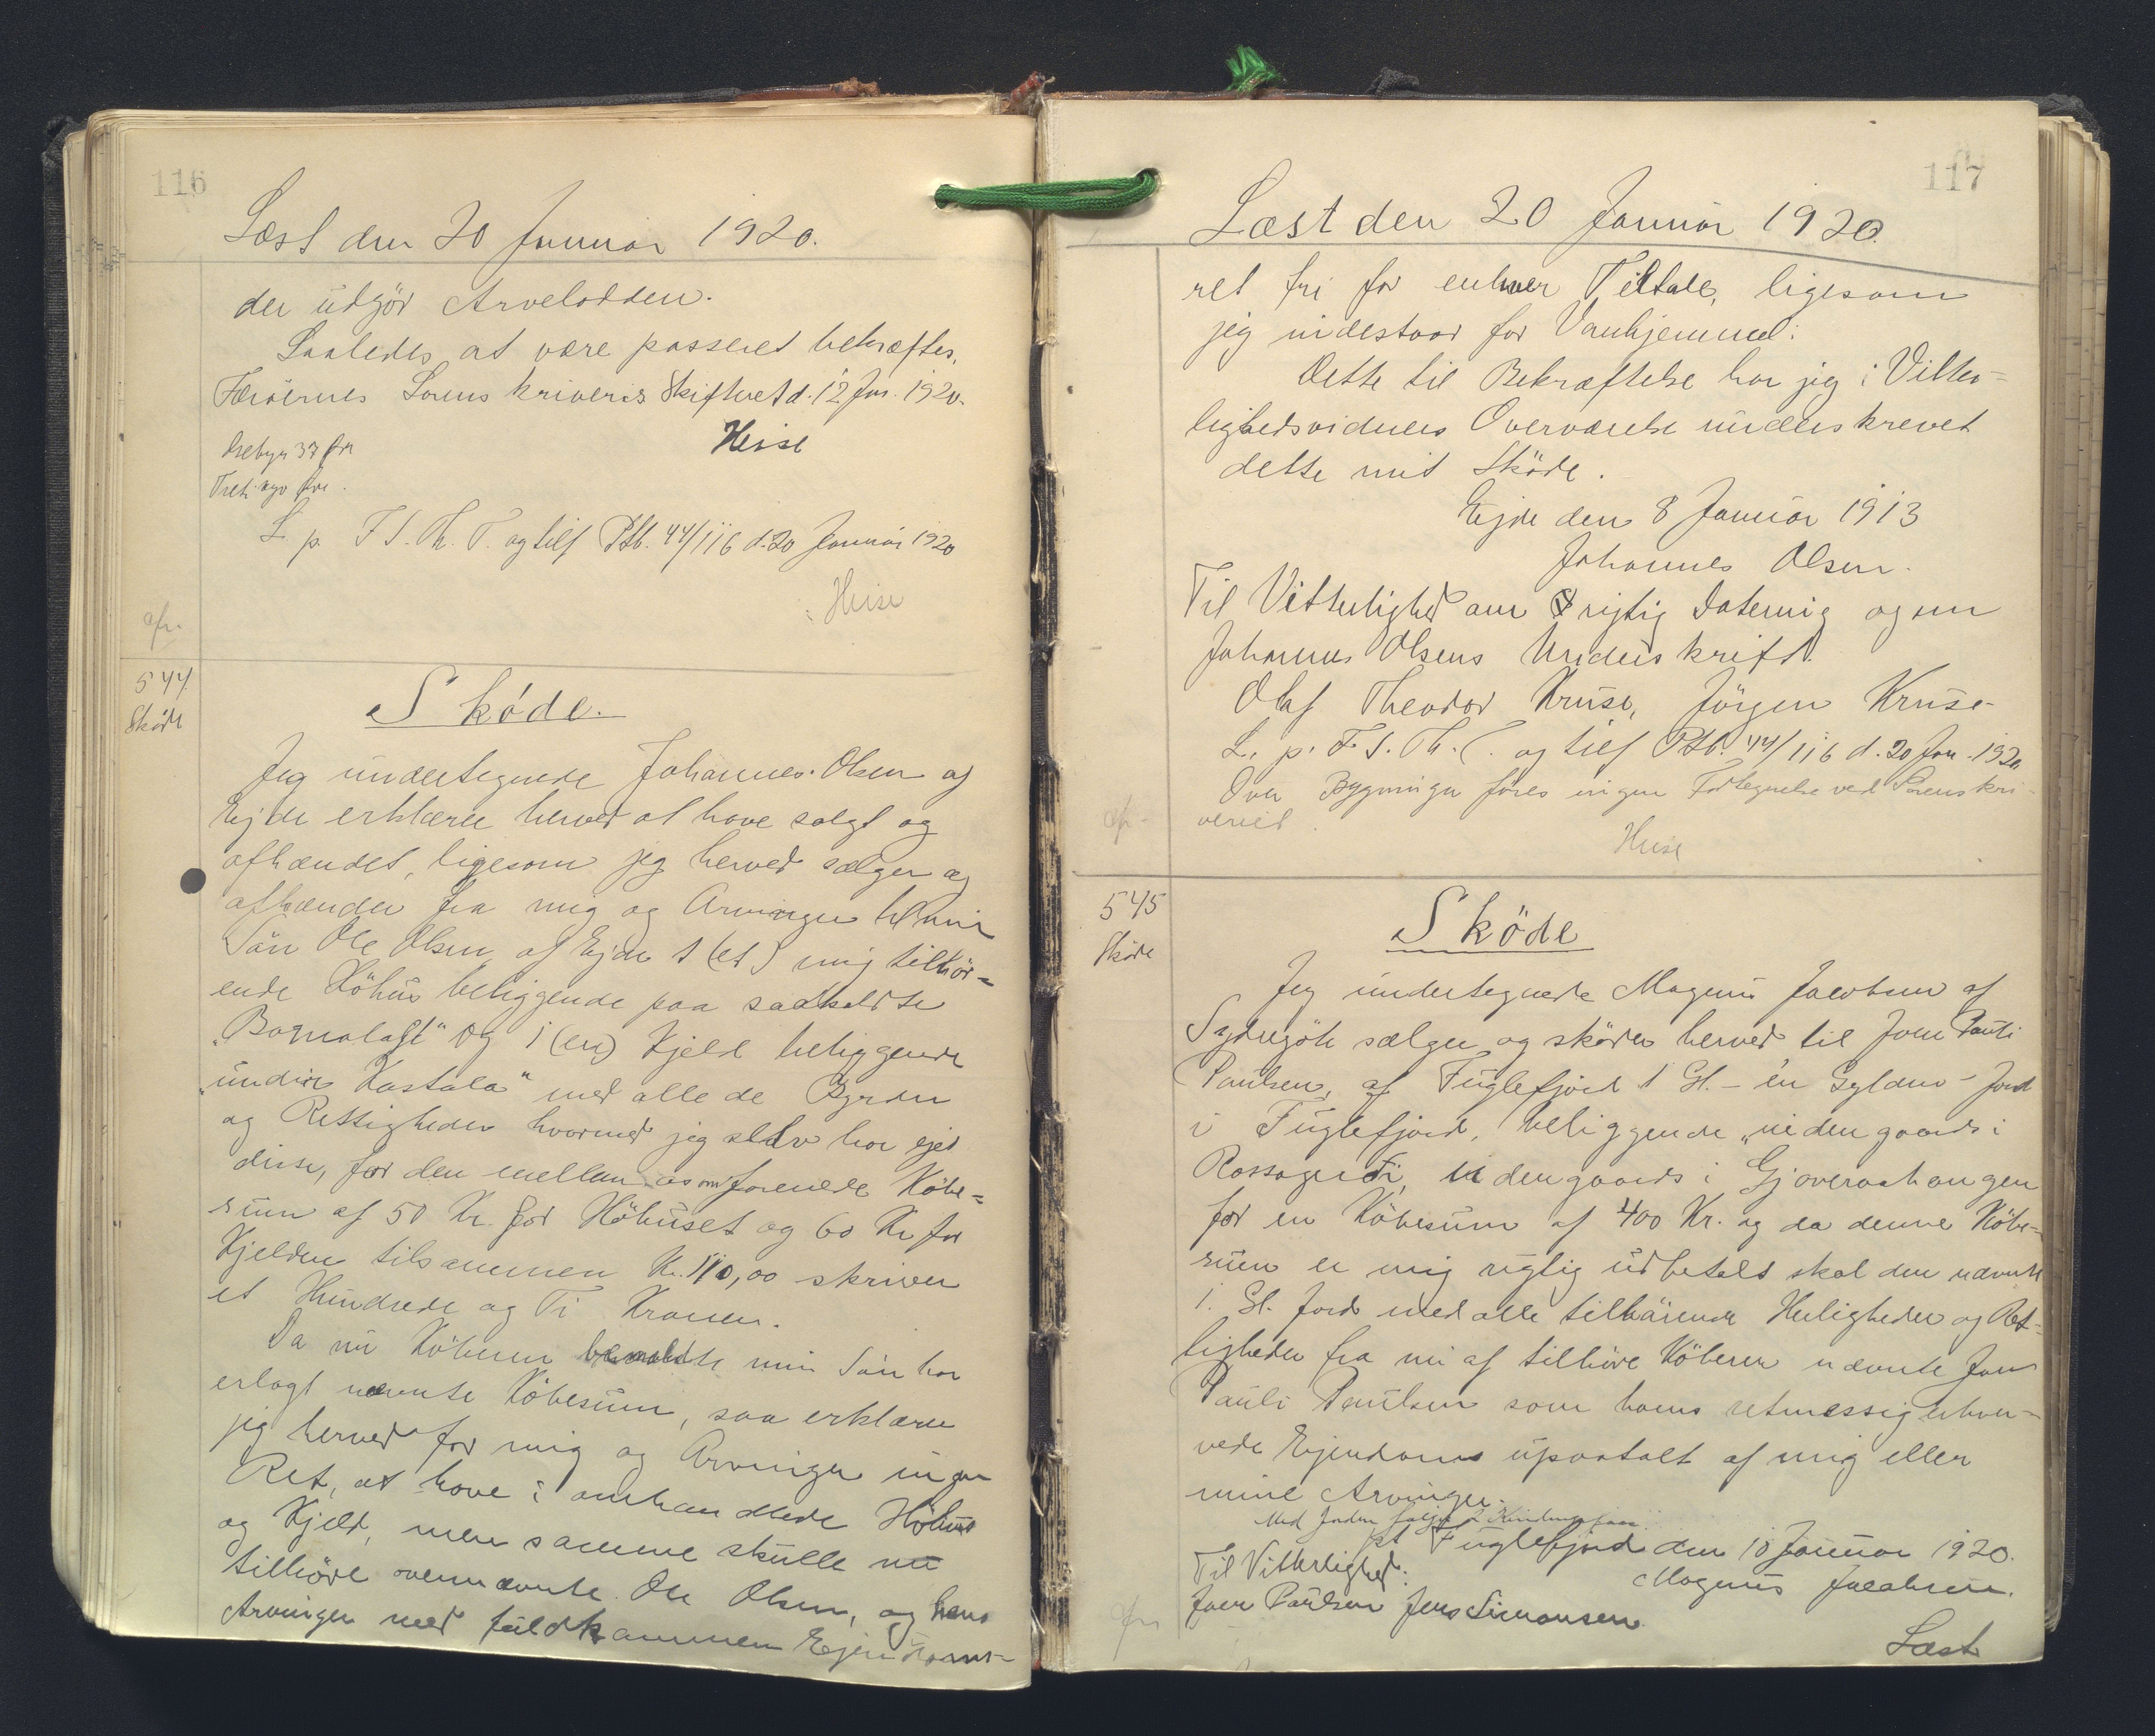 116
Læst den 20 Januar 1920.
der udgjör Arvelodden.
Saaledes at være passeret bekræftes.
Færöernes Sorenskriveris Skifteret d. 12 Jan. 1920.
Heise
Gebyr 37 Kr
L. p. F. S. Th. T. og tilf Ptb. 44/116 d. 20 Januar 1920
Heise
afr.
544.
Sköde
Sköde.
Jeg undertegnede Johannes Olsen af
Ejde erklærer herved at have solgt og
afhændet, ligesom jeg herved sælger og
afhænder fra mig og Arvinger til min
Sön Ole Olsen af Ejde 1 (et) mig tilhör=
ende Höhus beliggende paa saakaldte
og 1 (en) Kjeld beliggende
"undir Kastala" med alle de Byrder
og Rettigheder hvormed jeg selv har ejet
disse, for den mellem os omforenede Köbe=
sum af 50 Kr. for Höhuset og 60 Kr for
Kjelden tilsammen Kr. 110,00 skriver
et Hundrede og Ti Kroner.
Da nu Köberen bemeldte min Sön har
erlagt nævnte Köbesum, saa erklærer
jeg herved for mig og Arvinger ingen
Ret, at have i omhandlede Höhus
og Kjeld, men samme skulle nu
tilhöre ovennævnte Ole Olsen, og hans
Arvinger med fuldkommen Ejendoms-
117
Læst den 20 Januar 1920.
ret fri for enhver Tiltale, ligesom
jeg indestaar for Vanhjemmel.
Dette til Bekræftelse har jeg i Vitter=
lighedsvidners Overværelse underskrevet
dette mit Sköde.
Ejde den 8 Januar 1913
Johannes Olsen.
Til Vitterlighed om rigtig Datering og om
Johannes Olsens Underskrift.
Olaf Theodor Kruse, Jörgen Kruse
L. p. F. S. Th. T. og tilf Ptb. 44/116 d. 20 Jan. 1920.
Over Bygninger föres ingen Fortegnelse ved Sorenskri-
veriet.
Heise
afr.
545
Sköde
Sköde
Jeg undertegnede Magnus Jacobsen af
Sydregöte sælger og sköder herved til Joen Pauli
Paulsen, af Fuglefjord 1 Gl. - én Gylden - Jord
i Fuglefjord, beliggende "inden gaards i
inden gaards i
for en Köbesum af 400 Kr. og da denne Köbe-
sum er mig rigtig udbetalt skal den nævnte
1. Gl. Jord med alle tilhörende Herligheder og Ret=
tigheder fra nu af tilhöre Köberen nævnte Joen
Pauli Paulsen som hans retmæssig erhver-
vede Ejendom upaatalt af mig eller
mine Arvinger.
Med Jorden fölger
pt Fuglefjord den 10 Januar 1920.
Til Vitterlighed:
Magnus Jacobsen.
Joen Paulsen Jens Simonsen
afr
Læst